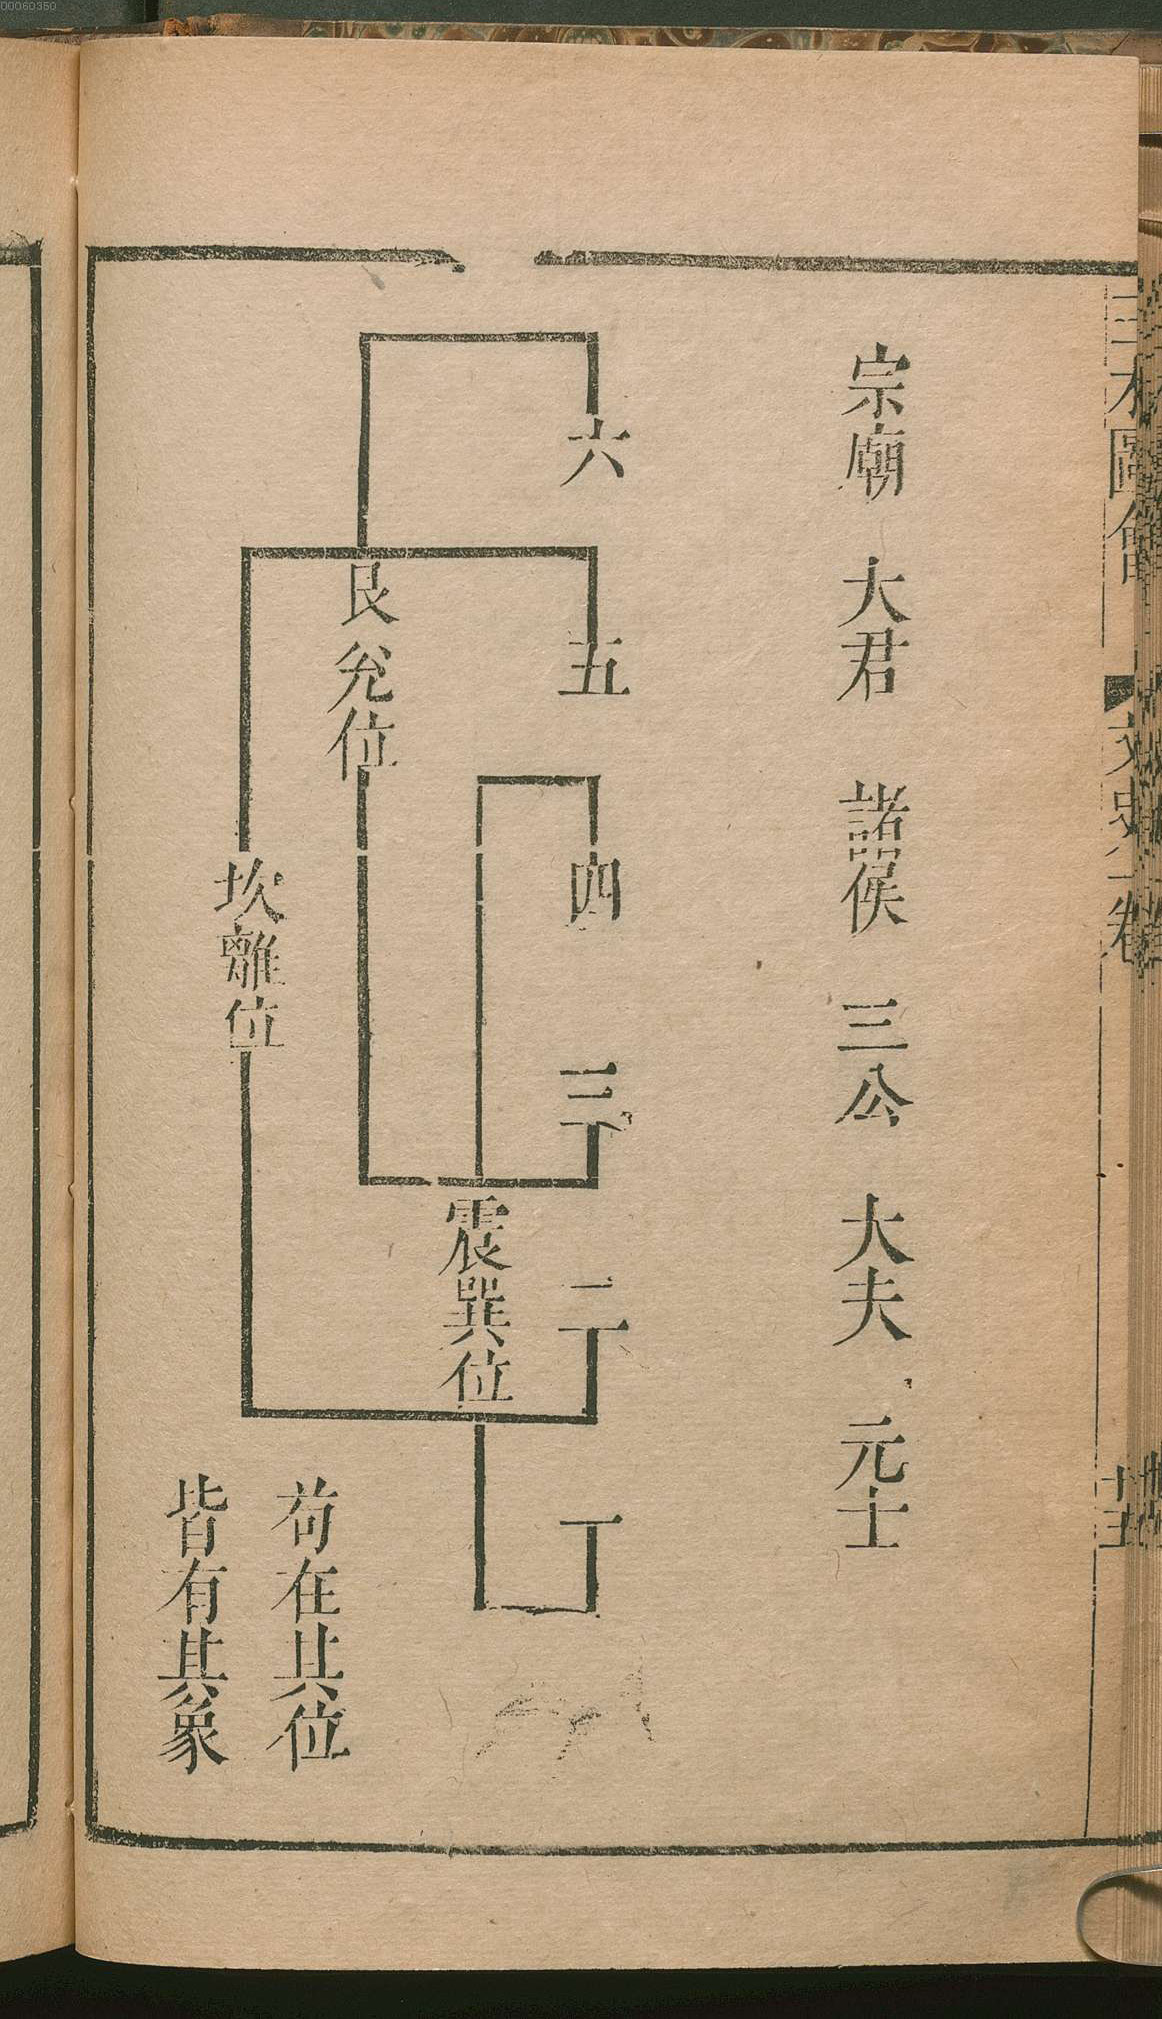 00060350
三才圖會
文史一卷
宗廟 大君 諸侯 三公 大夫 元士
六 五 四 三 二 一
震巽位
艮兌位
坎離位
苟在其位
皆有其象